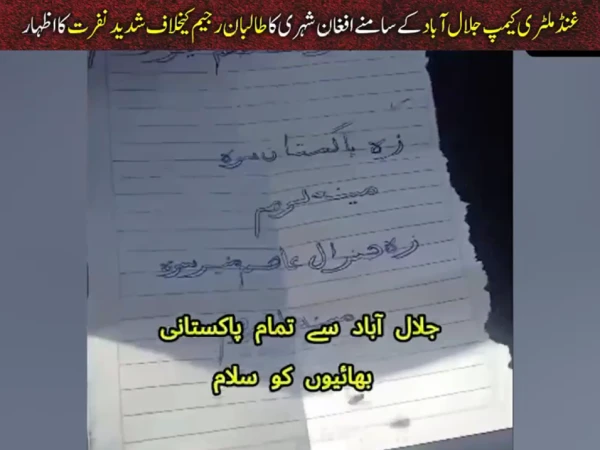 غنڈ ملٹری کیمپ جلال آباد کے سامنے افغان شہری کا طالبان رجیم کیخلاف شدید نفرت کا اظہار
زه پاکستان سره
مینه لرم
زه جنرال عاصم منیر سره
جلال آباد سے تمام پاکستانی
بھائیوں کو سلام